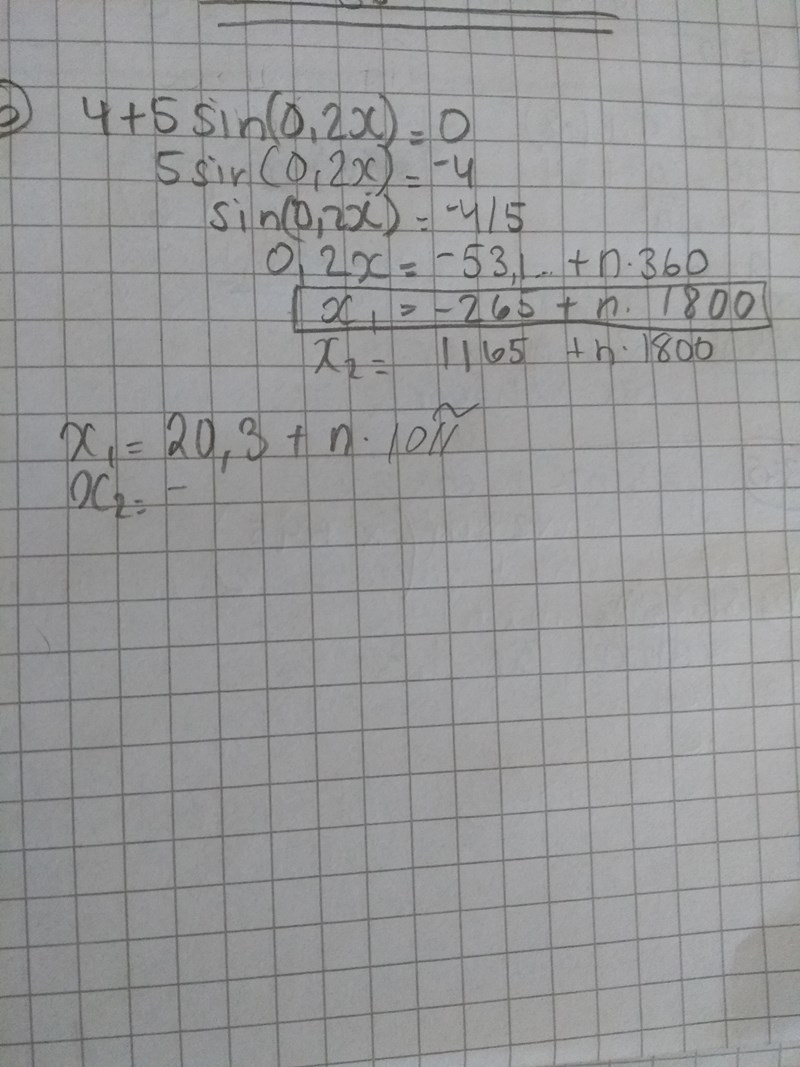 4+5 sin(0,2x) = 0
5 sin(0,2x) = -4
sin(0,2x) = -4/5
0,2x = -53,1... + n·360
x₁ = -265 + n· 1800
x₂ = 1165 + n·1800
x₁ = 20,3 + n· 10π
x₂ = -